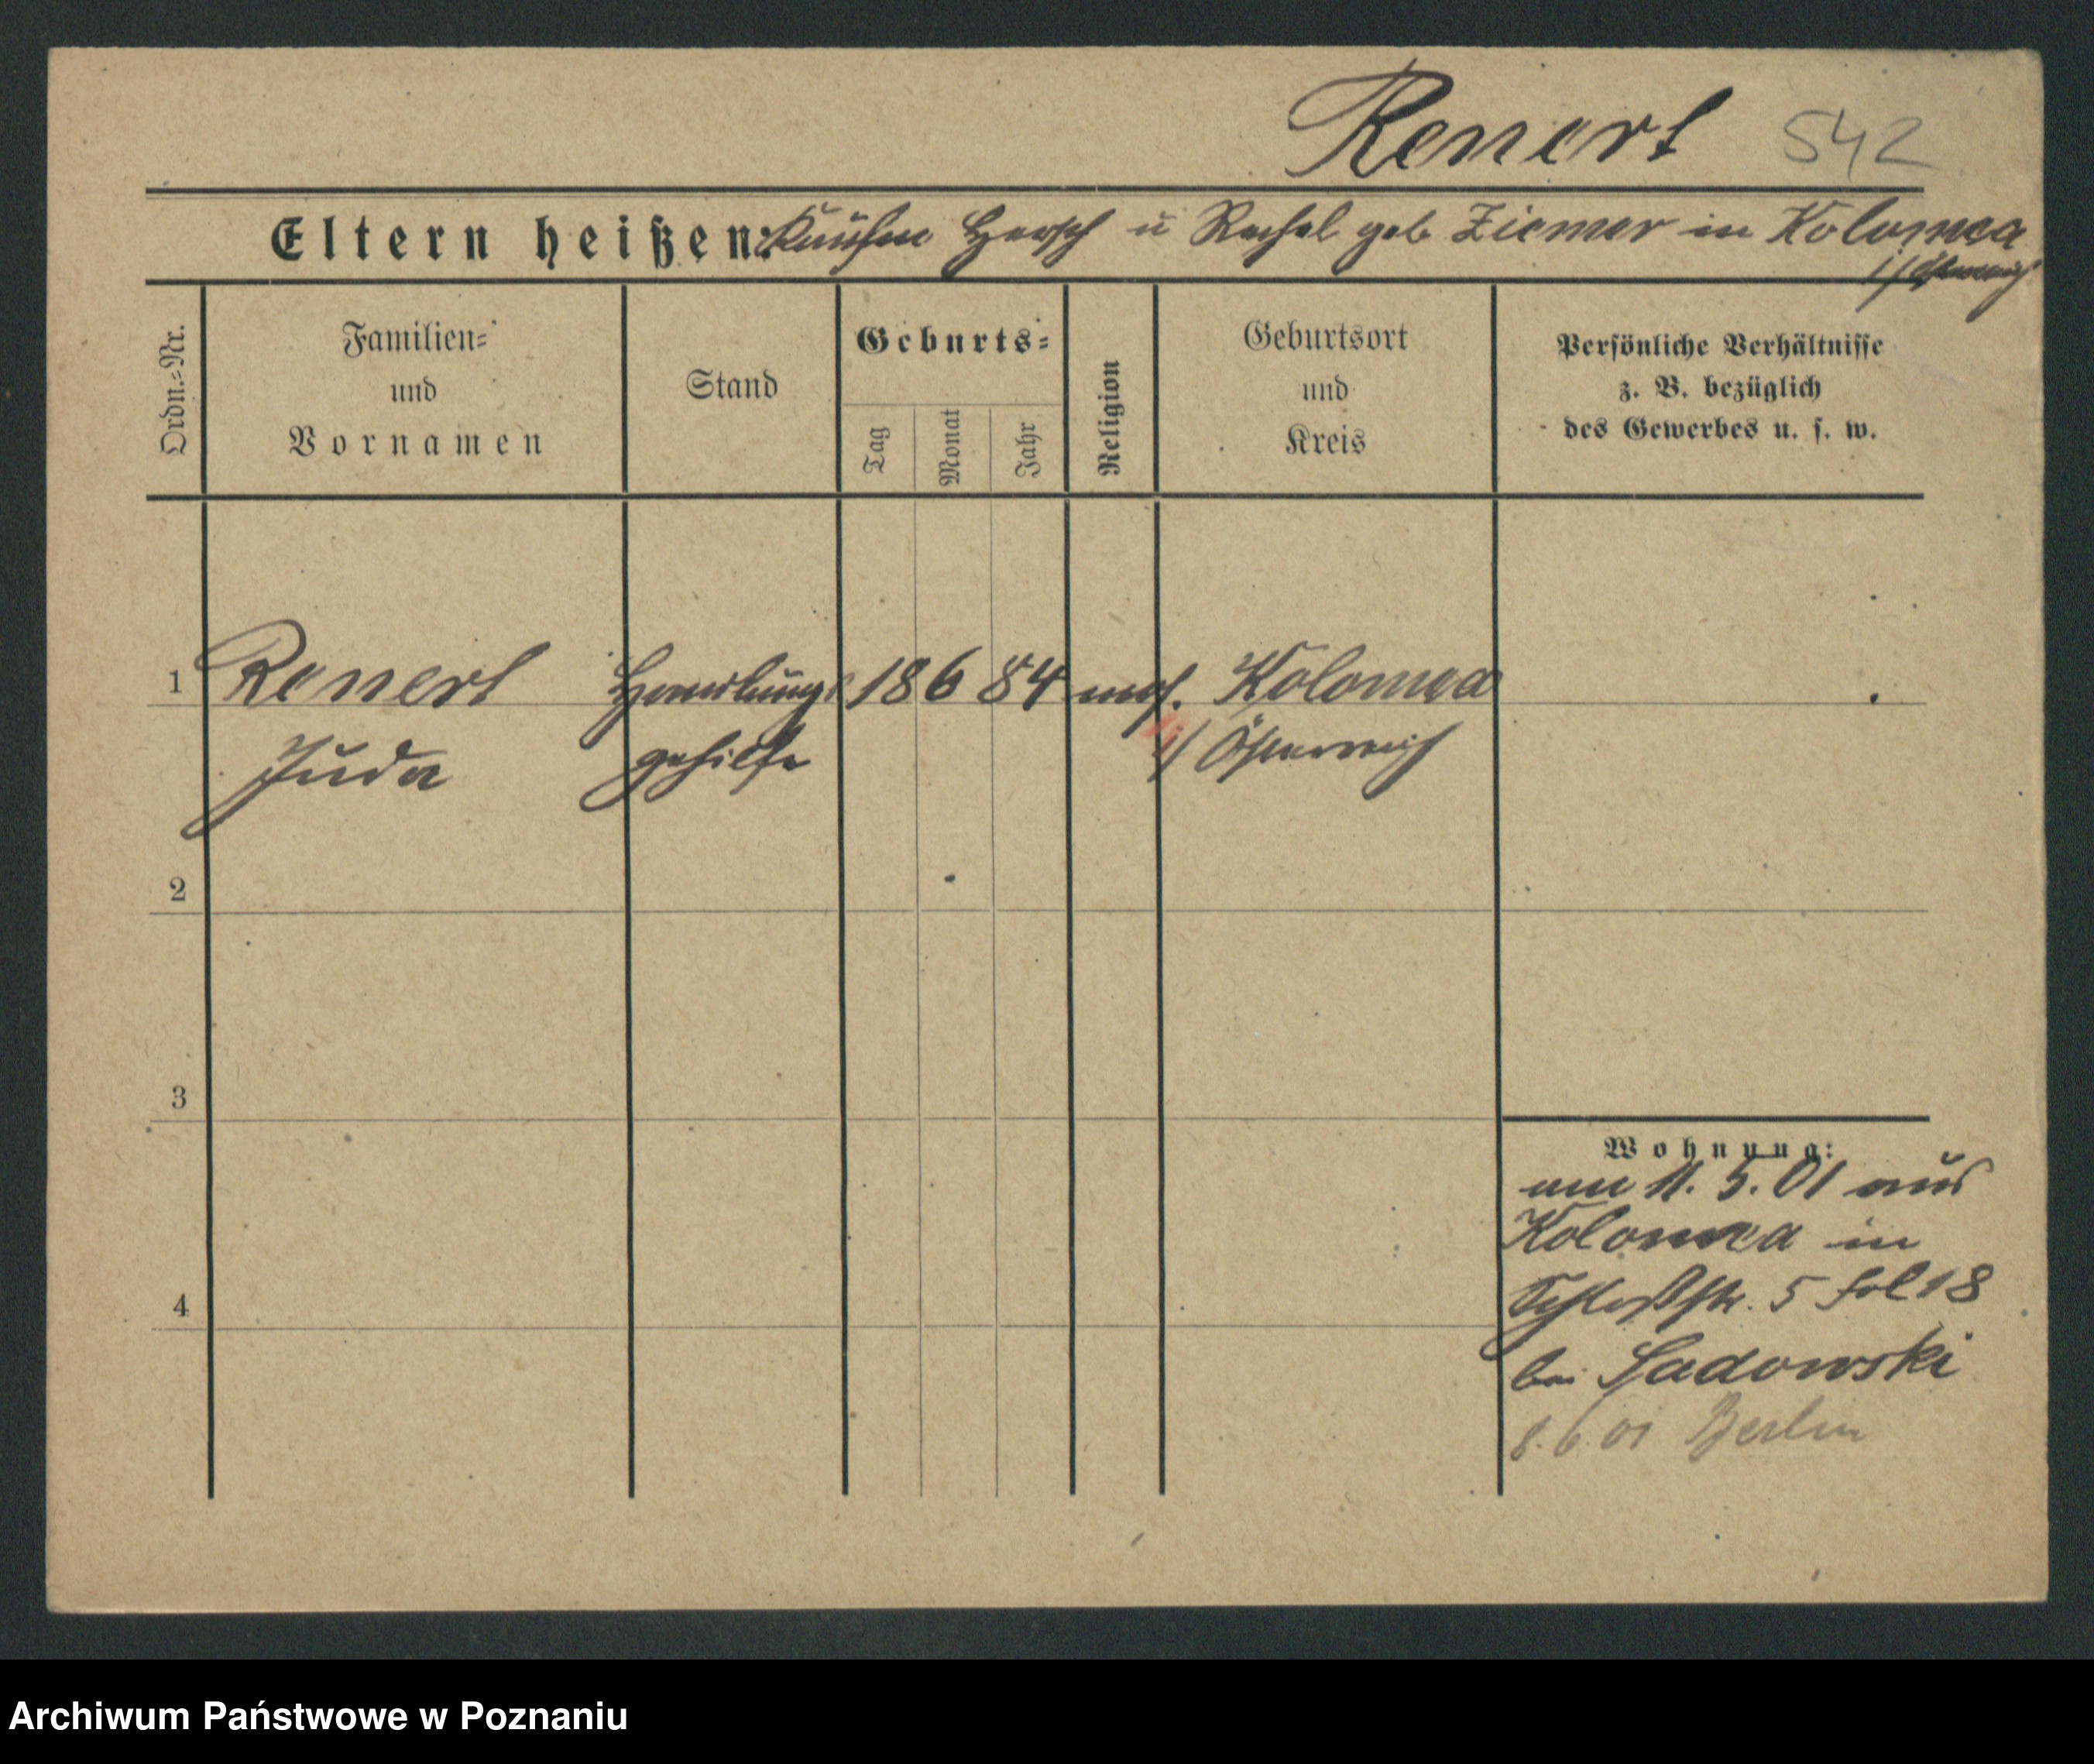 Renert 542
Eltern heißen: Kaufm Hersch u Rachel geb Ziemer in Kolomea
i/ Österreich
Ordn.=Nr.
Familien=
und
Vornamen
Stand
Geburts=
Tag
Monat
Jahr
Religion
Geburtsort
und
Kreis
Persönliche Verhältnisse
z. B. bezüglich
des Gewerbes u. s. w.
1 Renert Handlungs 18 6 84 mos. Kolomea
Juda gehilfe i/ Österreich
2
3
4
Wohnung:
am 11. 5. 01 aus
Kolomea in
Schloßstr. 5 fol 18
bei Sadowski
8. 6. 01 Berlin
Archiwum Państwowe w Poznaniu